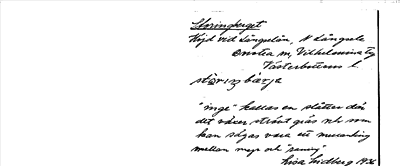 Storingberget
Höjd vid Långselån, N Långsele
m, Vilhelmina Tg
Västerbottens l
störingbärje
"inge" kallas en slåtter där
det växer strävt gräs och som
kan sägas vara ett mellanting
mellan myr och "raning"
Lisa Lidberg 1936